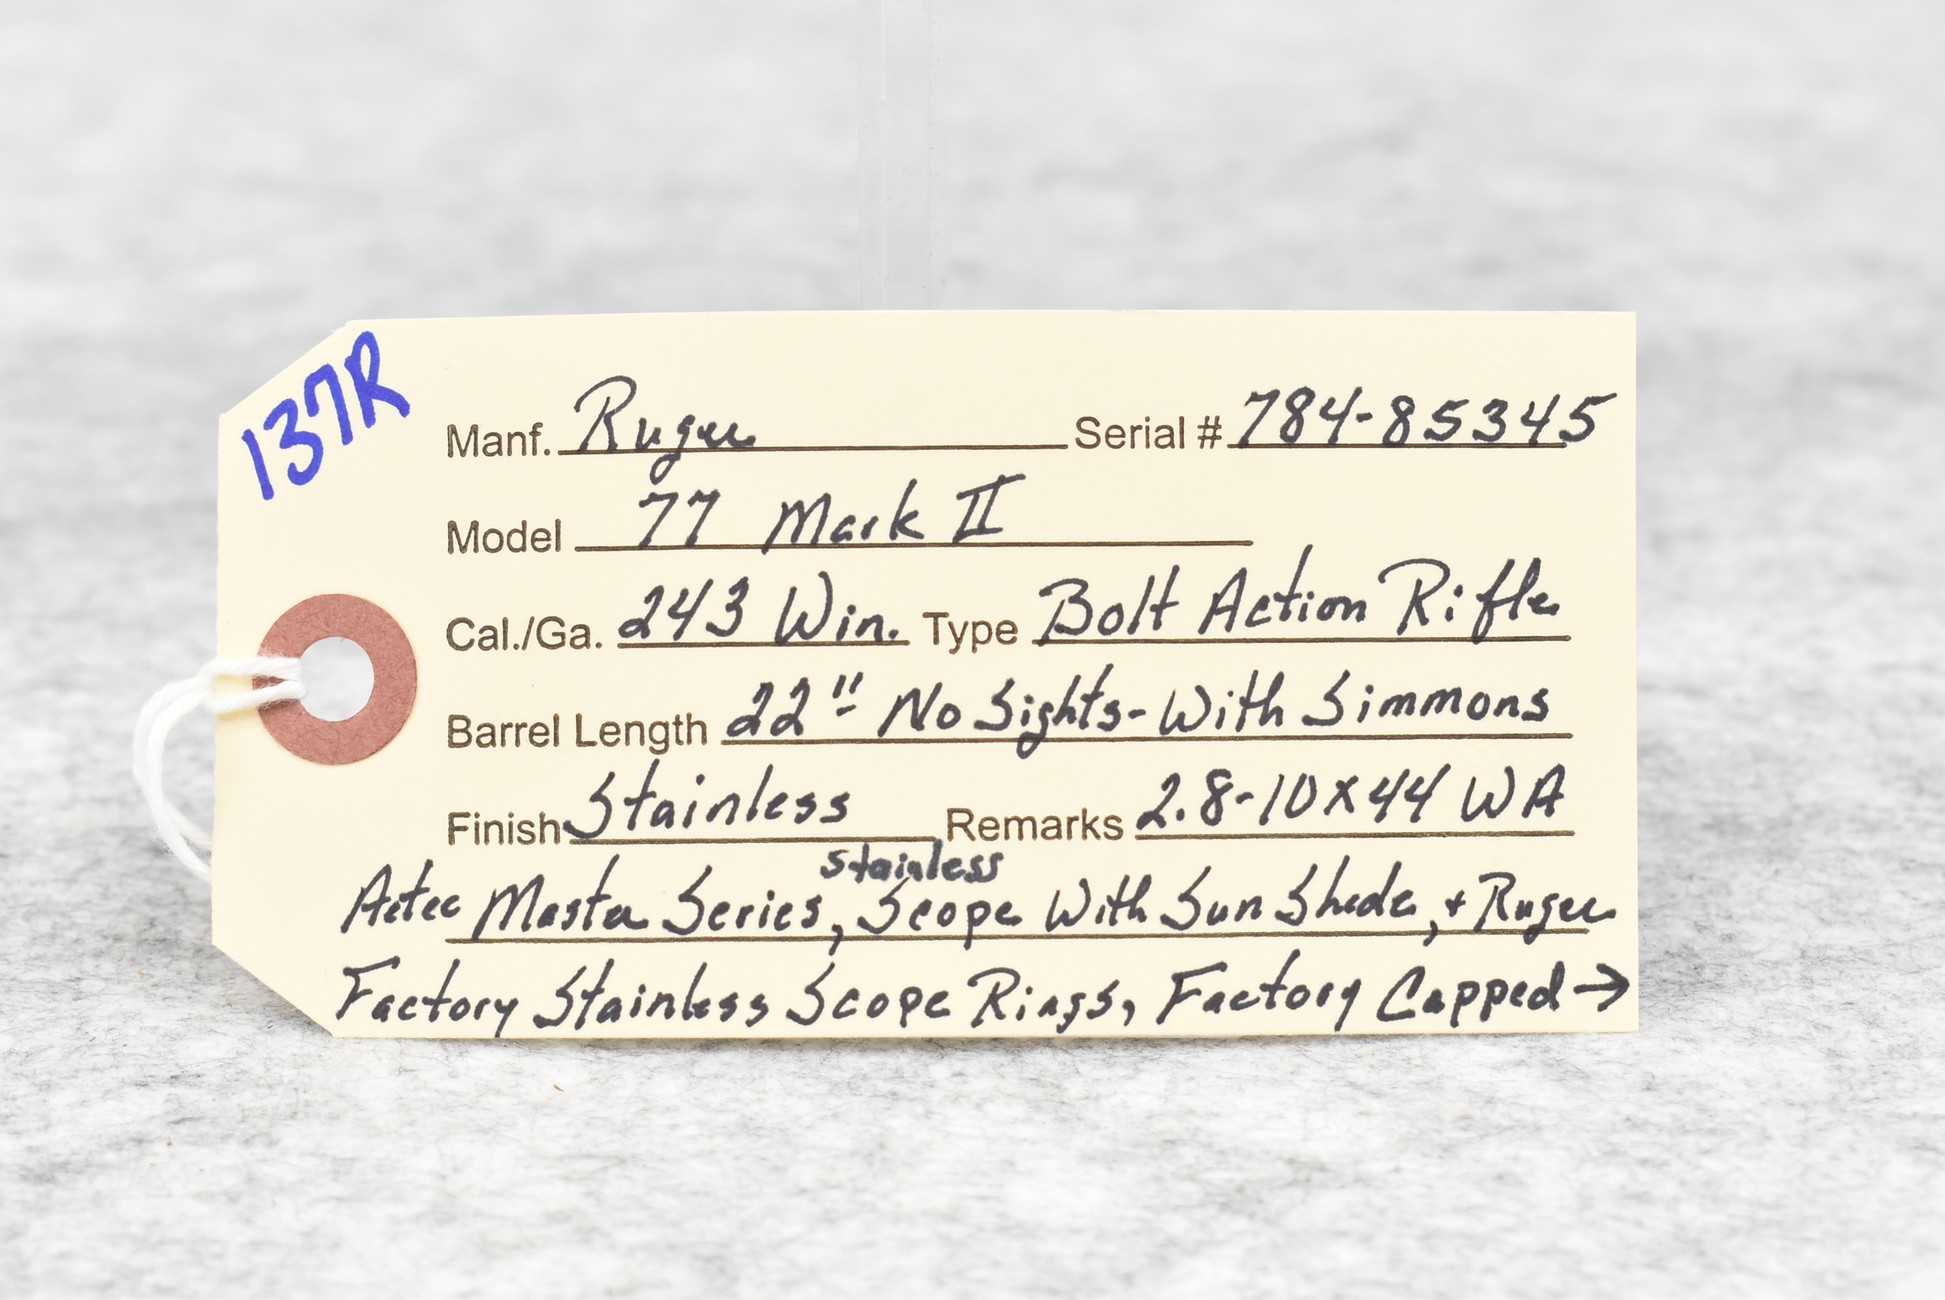 137R
Manf. Ruger Serial # 784-85345
Model 77 Mark II
Cal./Ga. 243 Win. Type Bolt Action Rifle
Barrel Length 22" No Sights - With Simmons
Finish Stainless Remarks 2.8-10x44 WA
stainless
Aetec Master Series, Scope With Sun Shade, + Ruger
Factory Stainless Scope Rings, Factory Capped →